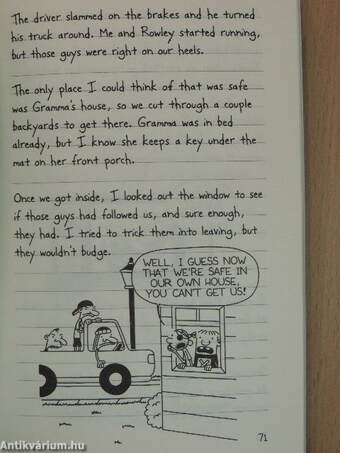 The driver slammed on the brakes and he turned
his truck around. Me and Rowley started running,
but those guys were right on our heels.
The only place I could think of that was safe
was Gramma's house, so we cut through a couple
backyards to get there. Gramma was in bed
already, but I know she keeps a key under the
mat on her front porch.
Once we got inside, I looked out the window to see
if those guys had followed us, and sure enough,
they had. I tried to trick them into leaving, but
they wouldn't budge.
WELL, I GUESS NOW
THAT WE'RE SAFE IN
OUR OWN HOUSE,
YOU CAN'T GET US!
71
Antikvárium.hu